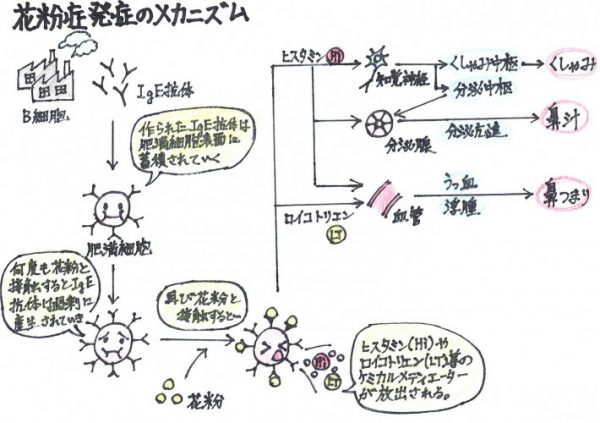 花粉症発症のメカニズム
B細胞
IgE抗体
作られたIgE抗体は
肥満細胞表面に
蓄積されていく
肥満細胞
何度も花粉と
接触するとIgE
抗体は過剰に
産生されていき
再び花粉と
接触すると…
花粉
Hi
LT
ヒスタミン(Hi)や
ロイコトリエン(LT)等の
ケミカルメディエーター
が放出される。
ヒスタミン Hi
知覚神経
くしゃみ中枢
くしゃみ
分泌中枢
分泌腺
分泌亢進
鼻汁
ロイコトリエン
LT
血管
うっ血
浮腫
鼻つまり